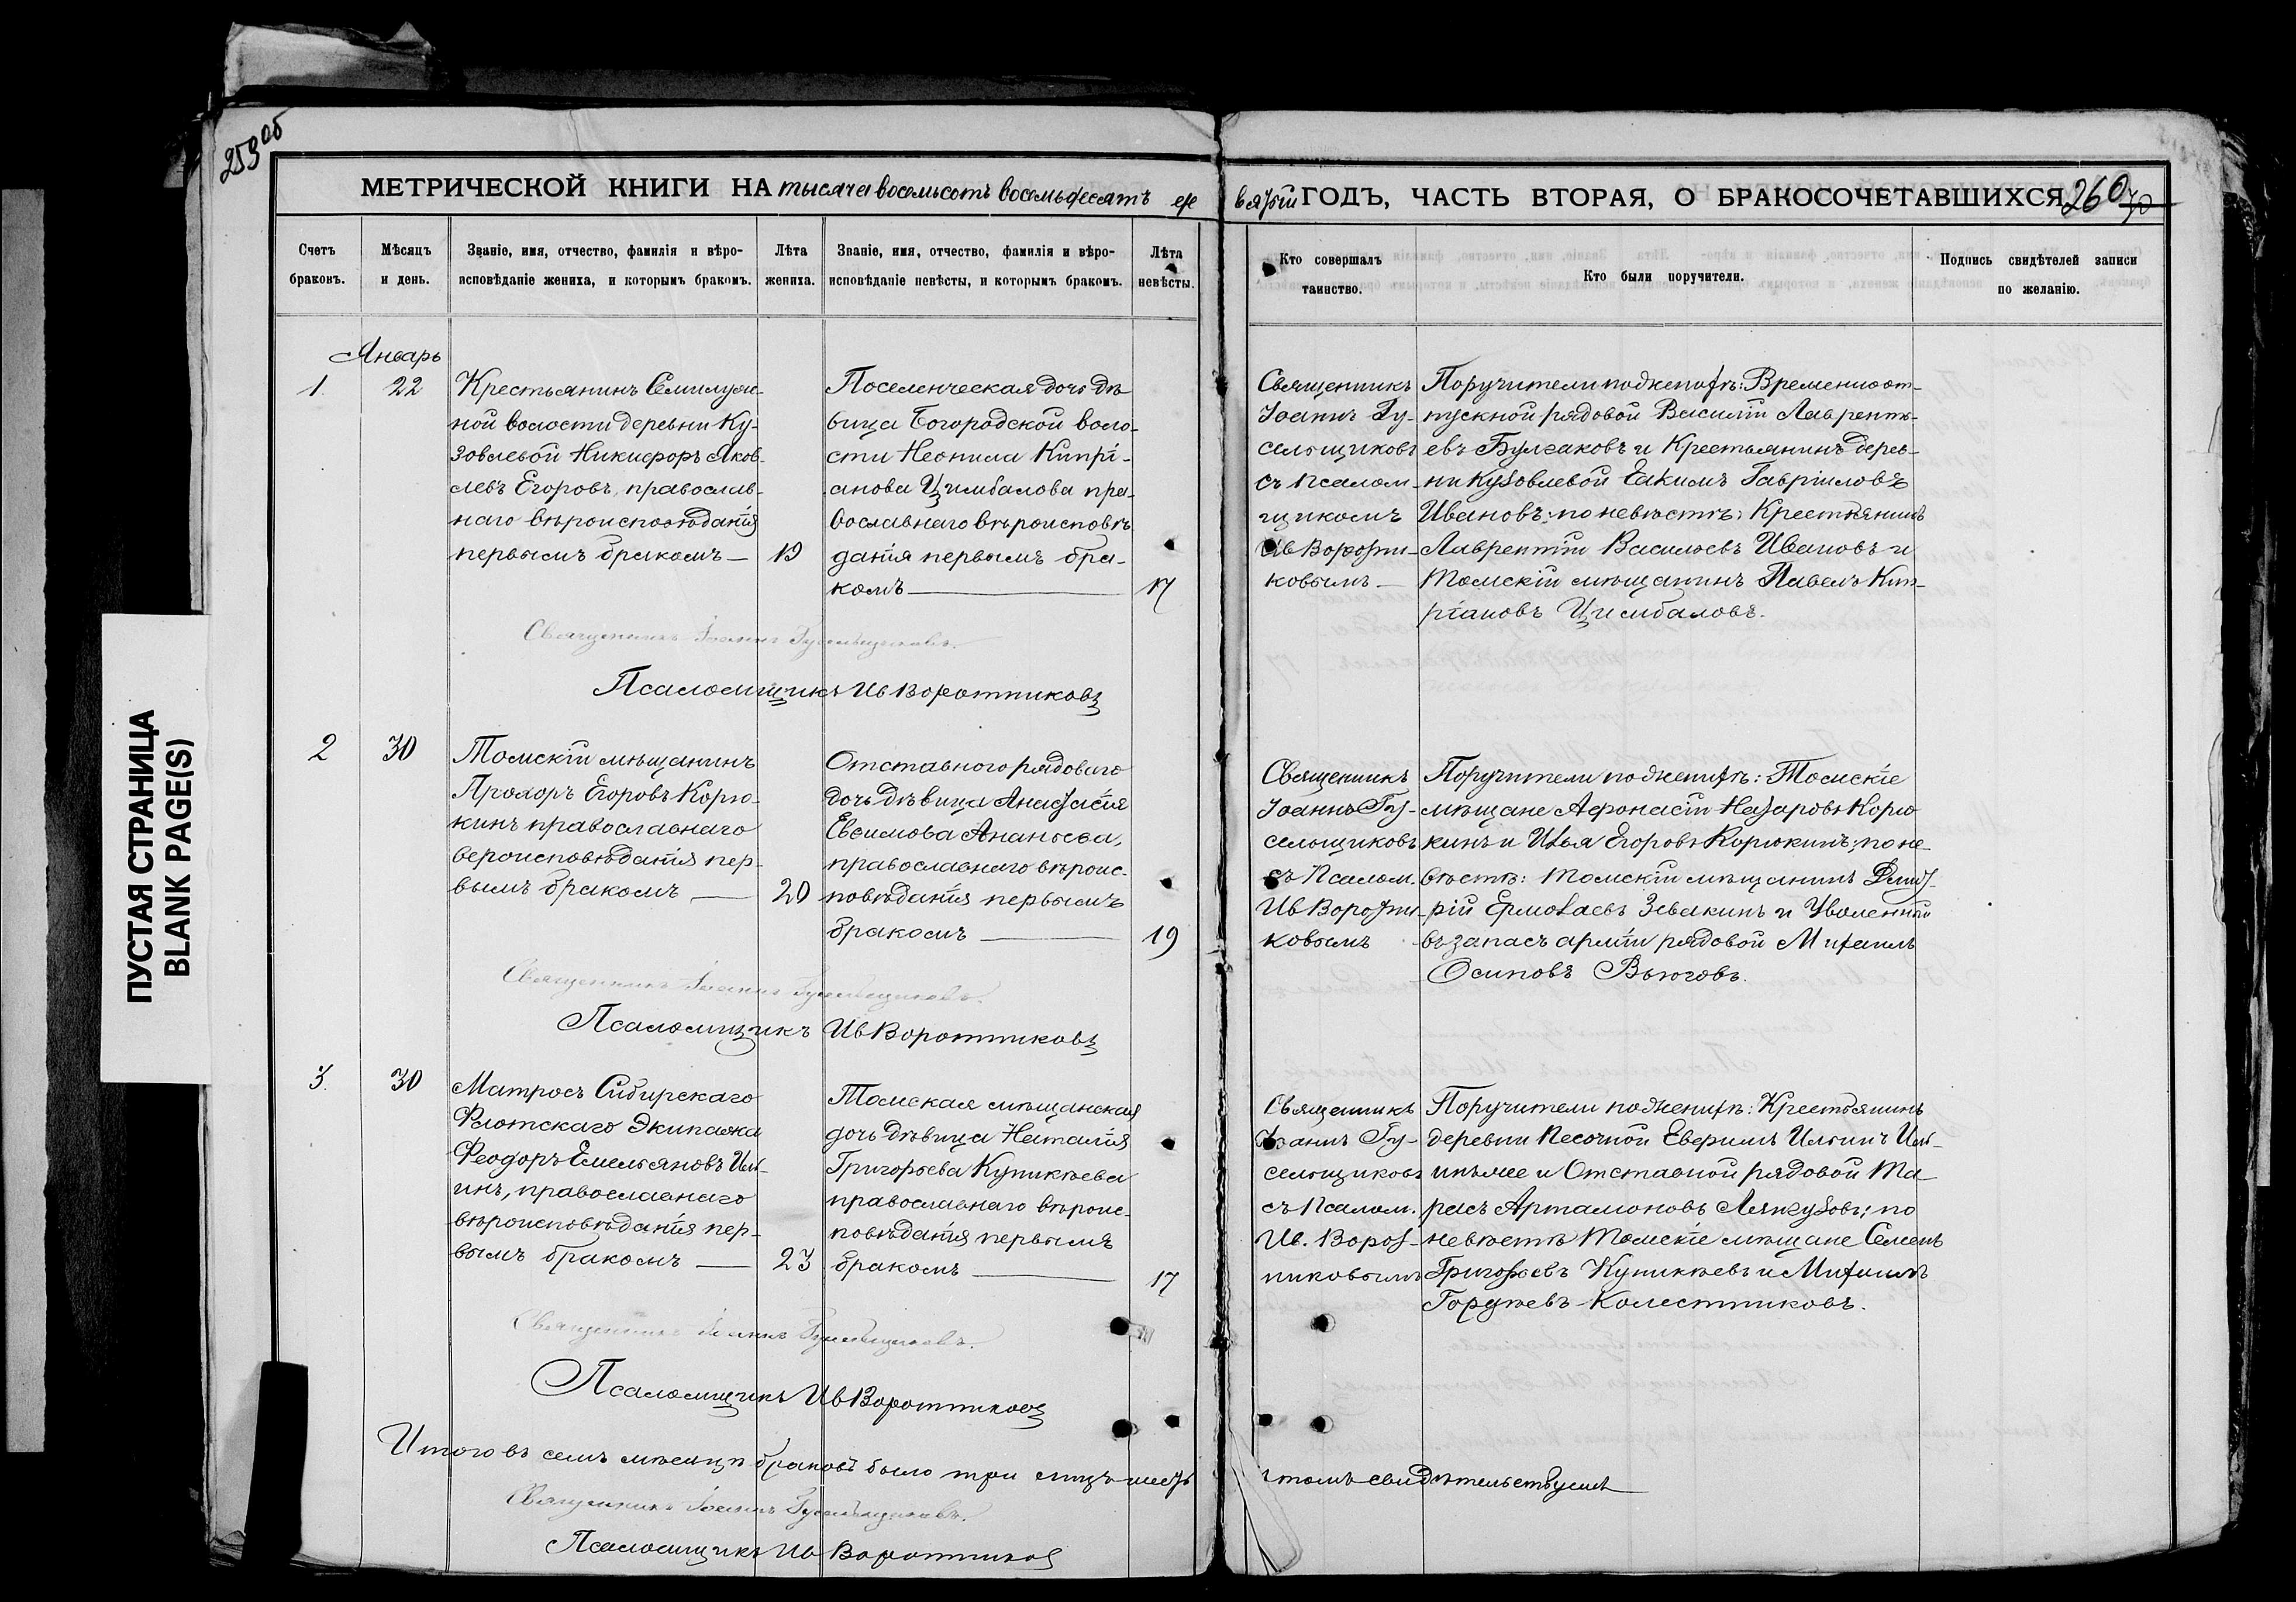 259 об
МЕТРИЧЕСКОЙ КНИГИ НА тысяча восемьсотъ восемьдесятъ де
вятый ГОДЪ, ЧАСТЬ ВТОРАЯ, О БРАКОСОЧЕТАВШИХСЯ 260
ПУСТАЯ СТРАНИЦА
BLANK PAGE(S)
Счетъ
браковъ.
Мѣсяцъ
и день.
Званіе, имя, отчество, фамилія и вѣро-
исповѣданіе жениха, и которымъ бракомъ.
Лѣта
жениха.
Званіе, имя, отчество, фамилія и вѣро-
исповѣданіе невѣсты, и которымъ бракомъ.
Лѣта
невѣсты.
Кто совершалъ
таинство.
Кто были поручители.
Подпись свидѣтелей записи
по желанію.
Январь
1.
22
Крестьянинъ Семилуж-
ной волости деревни Ку-
зовлевой Никифоръ Яков-
левъ Егоровъ, православ-
наго вѣроисповѣданія
первымъ бракомъ —
19
Поселенческая дочь дѣ
вица Богородской воло-
сти Неонила Кипрі-
анова Цимбалова пра-
вославнаго вѣроисповѣ
данія первымъ бра-
комъ —
17
Священникъ
Іоаннъ Гу-
сельщиковъ
съ псалом-
щикомъ
Ив Воротни-
ковымъ —
Поручители по женихѣ: Временноот-
пускной рядовой Василій Лавренть-
евъ Булгаковъ и Крестьянинъ дерев-
ни Кузовлевой Екимъ Гавріиловъ
Ивановъ; по невѣстѣ: Крестьянинъ
Лаврентій Васильевъ Ивановъ и
Томскій мѣщанинъ Павелъ Кип-
ріановъ Цимбаловъ.
Священникъ Іоаннъ Гусельщиковъ.
Псаломщикъ Ив Воротниковъ
2
30
Томскій мѣщанинъ
Прохоръ Егоровъ Корю-
кинъ православнаго
вероисповѣданія пер-
вымъ бракомъ —
20
Отставного рядового
дочь дѣвица Анастасія
Евсимова Ананьева,
православнаго вѣроис-
повѣданія первымъ
бракомъ —
19
Священникъ
Іоаннъ Гу-
сельщиковъ
съ псалом.
Ив Воротни-
ковымъ
Поручители по женихѣ: Томскіе
мѣщане Афонасій Назаровъ Корю
кинъ и Илья Егоровъ Корюкинъ; по не-
вѣстѣ: Томскій мѣщанинъ Дмит-
рій Ермолаевъ Зевакинъ и Уволенный
въ запасъ арміи рядовой Михаилъ
Осиповъ Вьюговъ.
Священникъ Іоаннъ Гусельщиковъ.
Псаломщикъ Ив Воротниковъ
3.
30
Матросъ Сибирскаго
Флотскаго Экипажа
Феодоръ Емельяновъ Иль-
инъ, православнаго
вѣроисповѣданія пер-
вымъ бракомъ —
23
Томская мѣщанская
дочь дѣвица Наталія
Григорьева Куникѣева
православнаго вѣроис-
повѣданія первымъ
бракомъ —
17
Священникъ
Іоаннъ Гу-
сельщиковъ
съ псалом.
Ив. Ворот-
никовымъ
Поручители по женихѣ: Крестьянинъ
деревни Песочной Ильинъ
и Отставной рядовой Та-
расъ Артамоновъ по
невѣстѣ Томскіе мѣщане Семенъ
Григорьевъ Куникѣевъ и Михаилъ
Колестниковъ.
Священникъ Іоаннъ Гусельщиковъ.
Псаломщикъ Ив Воротниковъ
Итого въ семъ мѣсяцѣ браковъ было три лицъ шесть
томъ свидѣтельствуемъ
Священникъ Іоаннъ Гусельщиковъ.
Псаломщикъ Ив Воротников